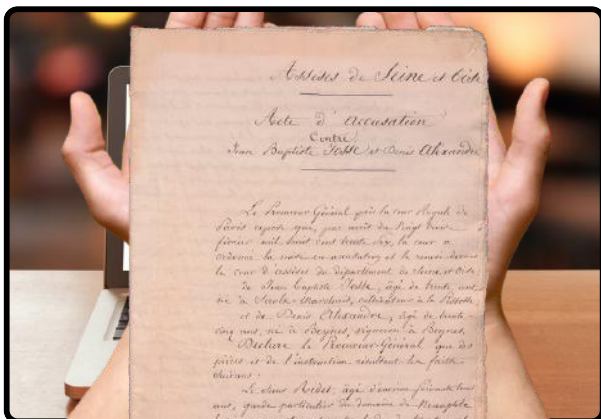 Assises de Seine et Oise
Acte d'accusation
Contre
Jean Baptiste Fosse et Denis Alexandre
Le Procureur Général près la cour Royale de
Paris expose que, par arrêt du vingt trois
février mil huit cent trente six, la cour a
ordonné la mise en accusation et le renvoi devant
la cour d'assises du département de Seine et Oise
de Jean Baptiste Fosse, âgé de trente ans,
né à Marchais, cultivateur à la
et de Denis Alexandre, âgé de trente
cinq ans, né à Beynes, vigneron à Beynes,
Déclare le Procureur Général que des
pièces et de l'instruction résultent les faits
suivans.
Le Sieur Ridet, âgé d'environ soixante
ans, garde particulier du domaine de Neauphle